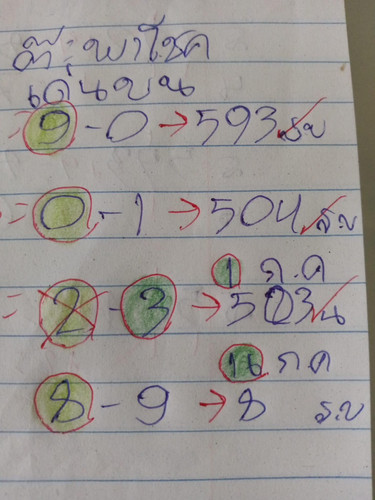 ตี๋:พาโชค
เด่นบน
= 9 - 0 → 593 ✓ ร.บ
= 0 - 1 → 504 ✓ ร.บ
1 ก.ค
= 2 - 3 → 503 ✓ น
16 กค
8 - 9 → 8 ร.บ